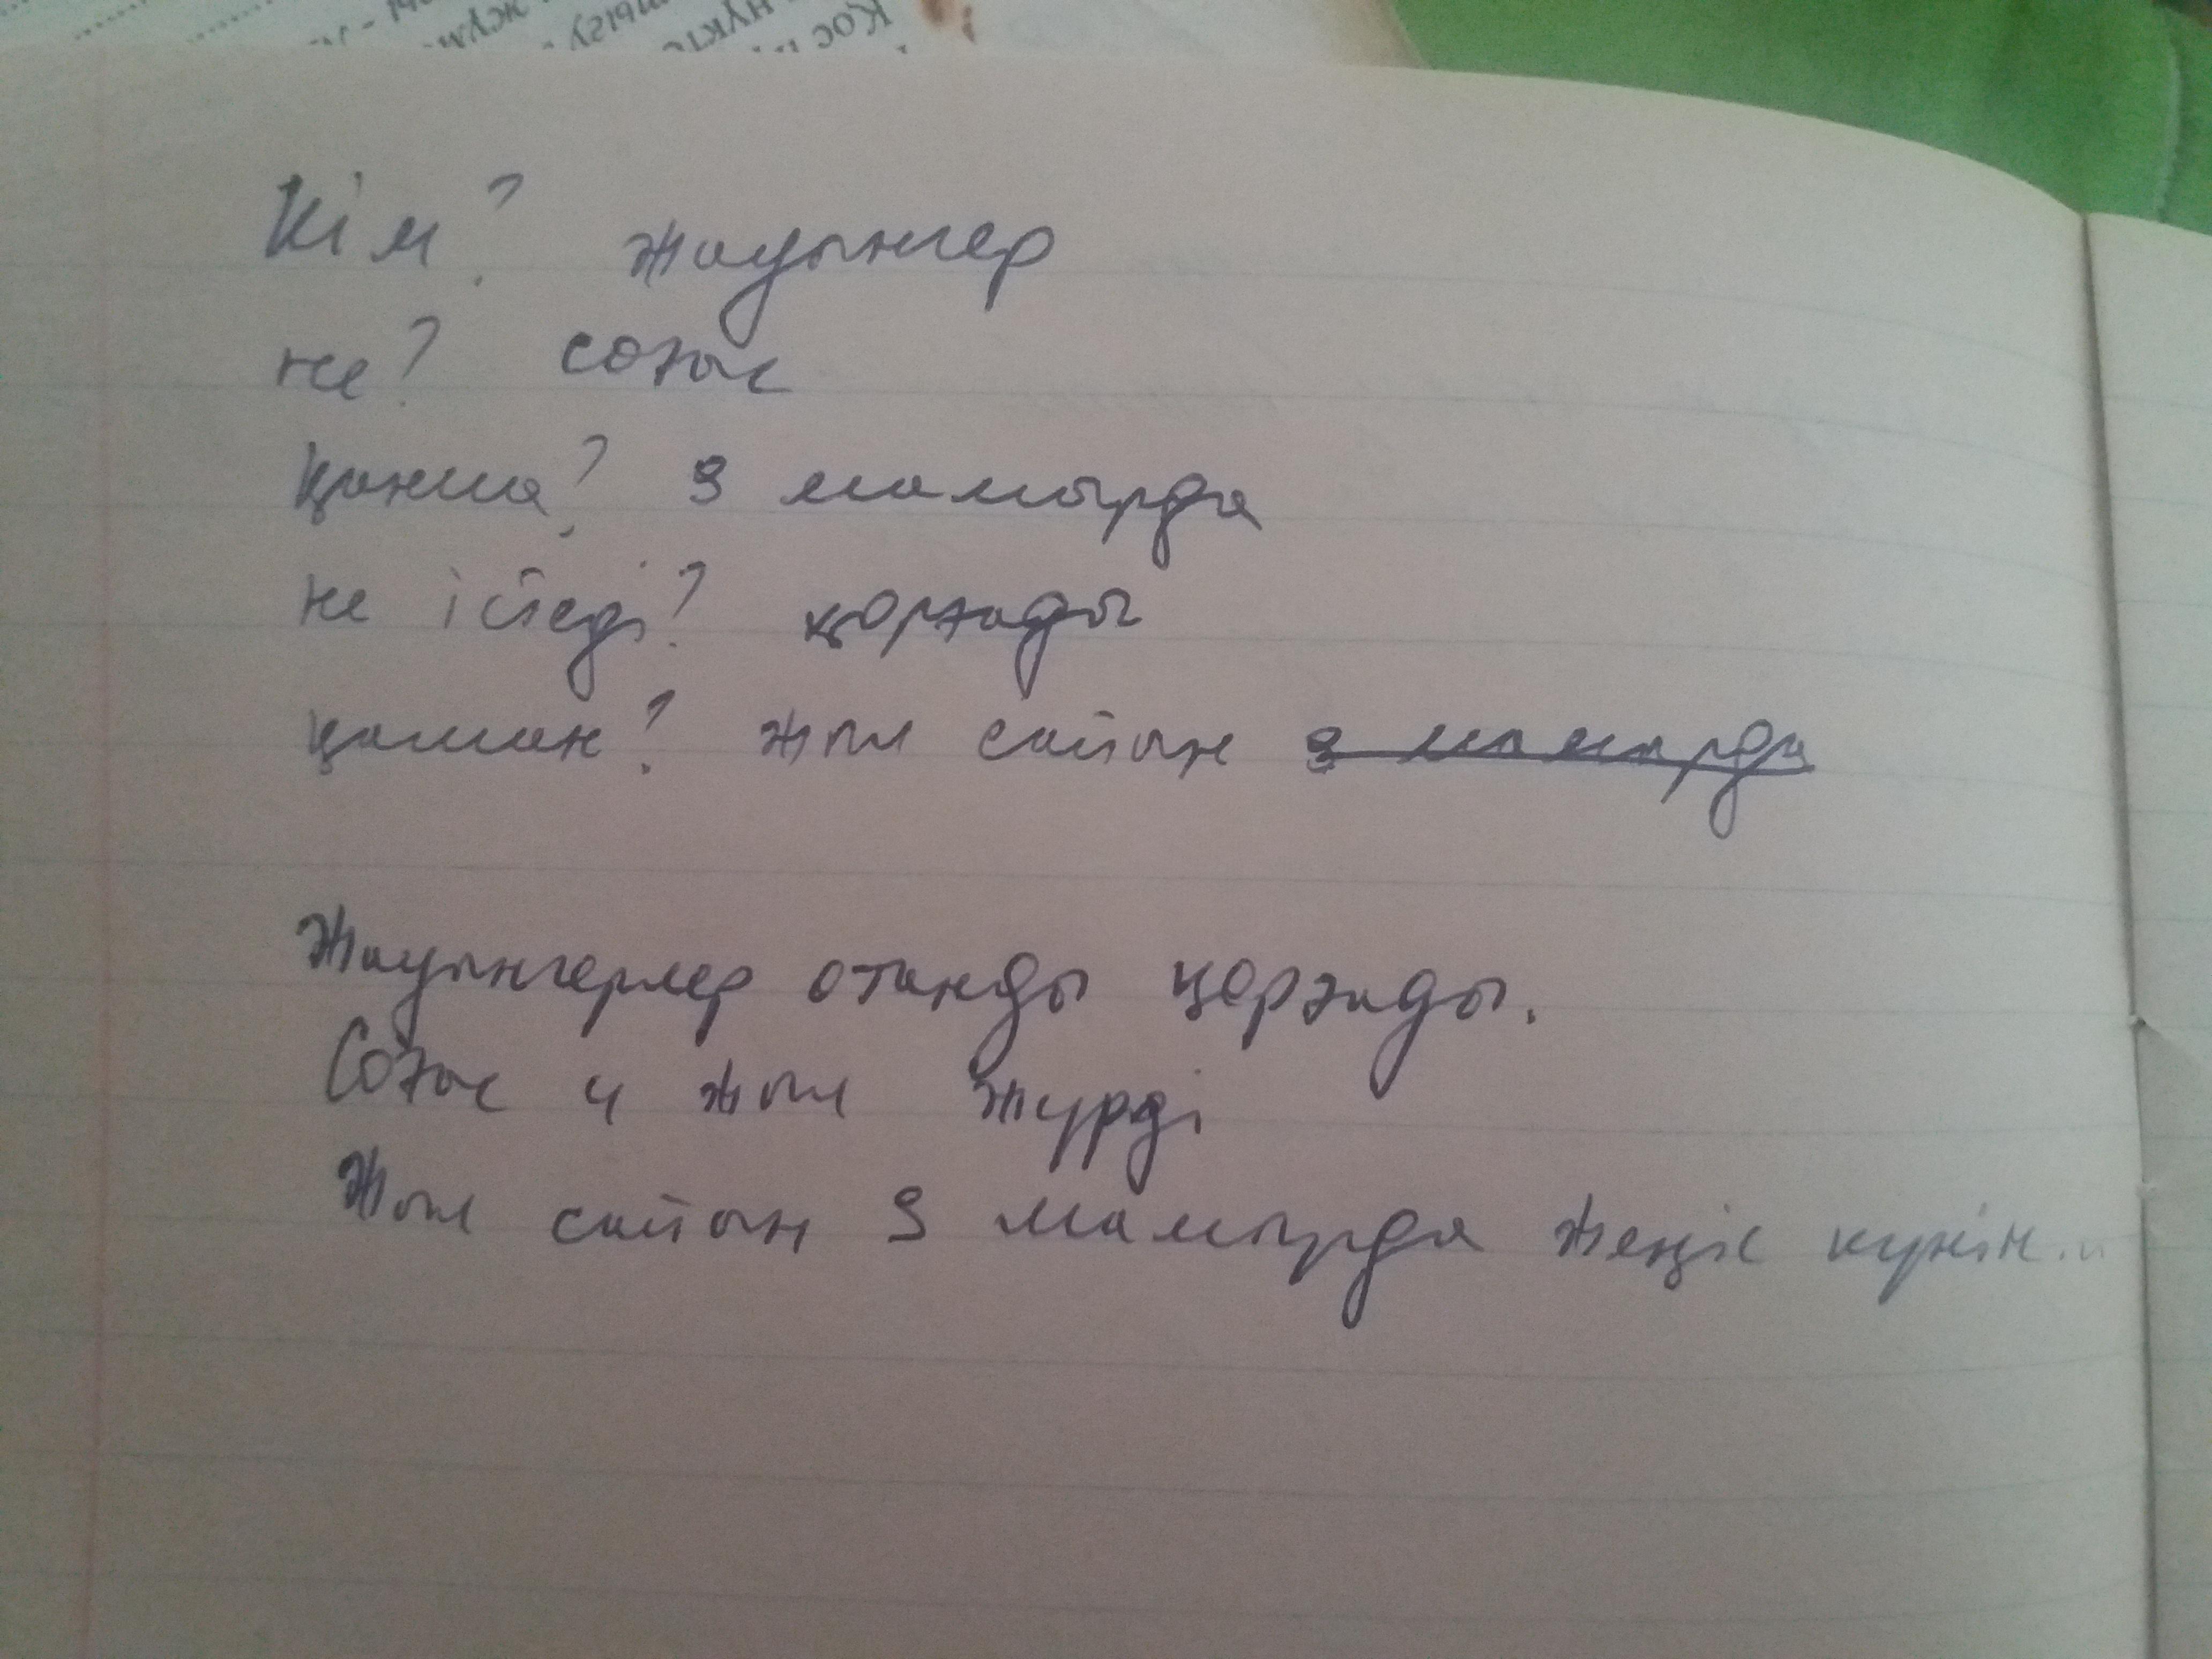 Кім? жауынгер
не? соғыс
Қанша? 9 мамырда
не істеді? қорғады
қашан? жыл сайын 9 мамырда
Жауынгерлер отанды қорғады.
Соғыс 4 жыл жүрді
Жыл сайын 9 мамырда жеңіс күнін